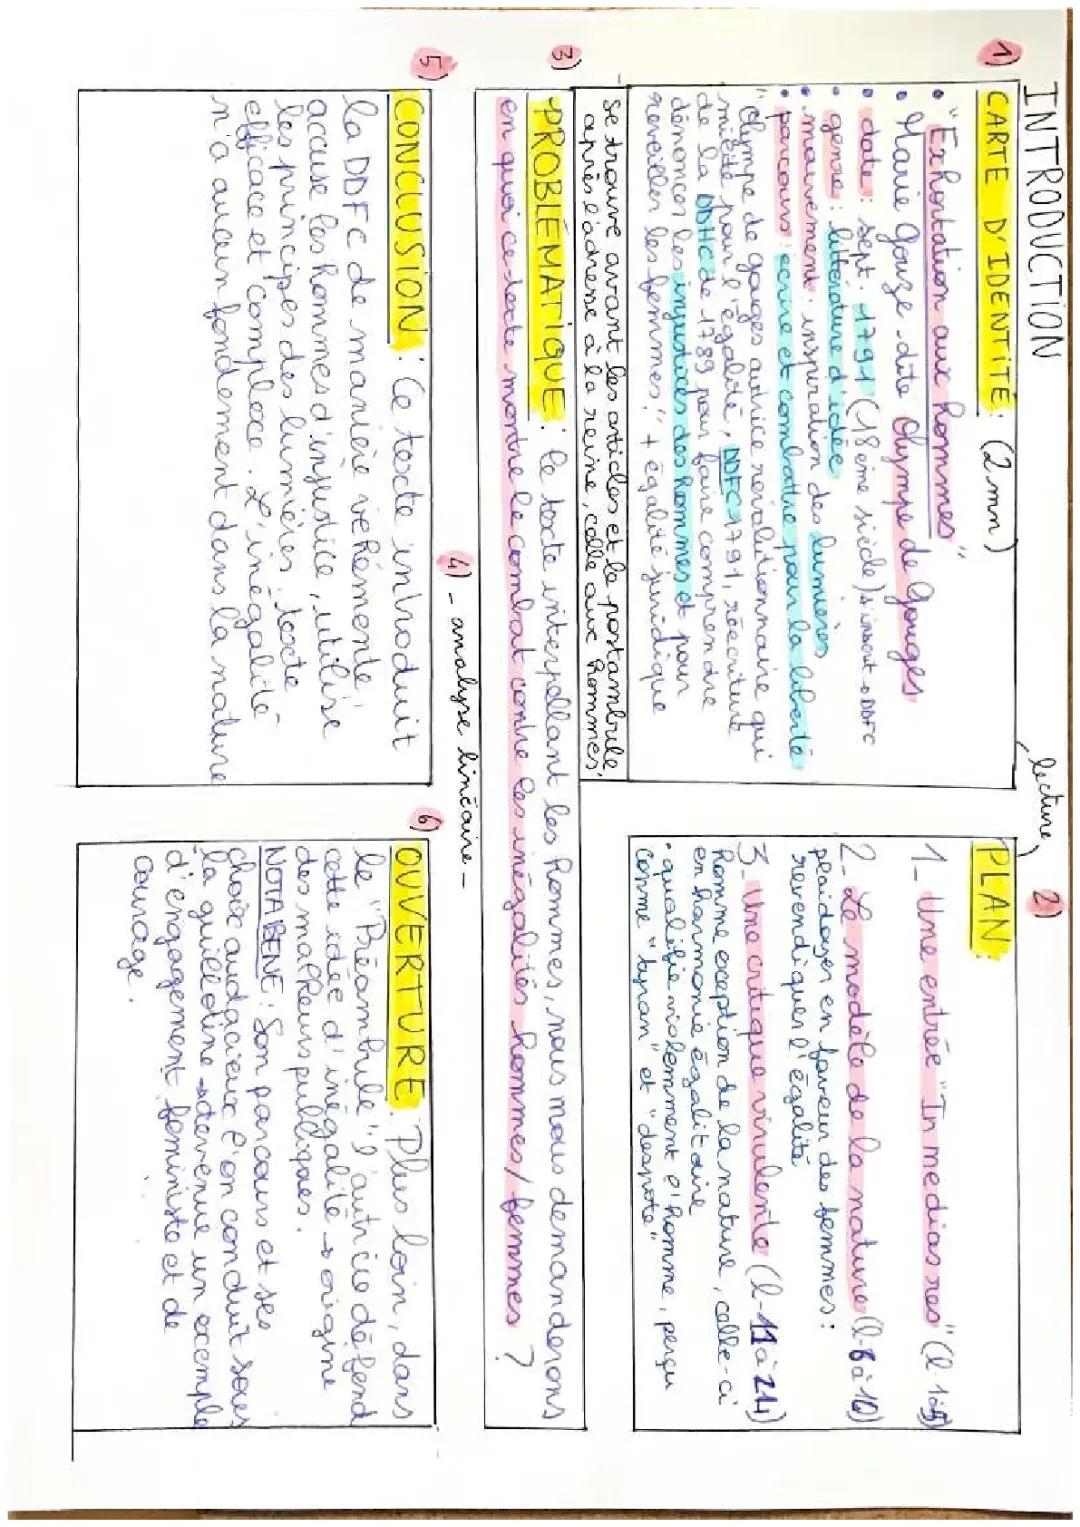 INTRODUCTION
lecture
1)
CARTE D'IDENTITÉ : (2mn)
• "Exhortation aux hommes"
• Marie Gouze dite Olympe de Gouges
• date : sept. 1791 (18ème siècle) s'inscrit → DDFC
• genre : littérature d'idée
• mouvement : inspiration des lumières
• parcours : écrire et combattre pour la liberté
"Olympe de gouges autrice révolutionnaire qui
milite pour l'égalité, DDFC 1791, réécriture
de la DDHC de 1789 pour faire comprendre
dénoncer les injustices des hommes et pour
réveiller les femmes." + égalité juridique
se trouve avant les articles et le postambule,
après l'adresse à la reine, celle aux hommes.
2)
PLAN :
1_ Une entrée "In medias res" (l-1à5)
2_ Le modèle de la nature (l-6à10)
plaidoyer en faveur des femmes :
revendiquer l'égalité
3_ Une critique virulente (l-11à24)
homme exception de la nature, celle-ci
en harmonie égalitaire
• qualifie violemment l'homme, perçu
comme "tyran" et "despote"
3)
PROBLÉMATIQUE : le texte interpellant les hommes, nous nous demanderons
en quoi ce texte montre le combat contre les inégalités hommes/femmes ?
4) _ analyse linéaire _
5)
CONCLUSION : Ce texte introduit
la DDFC de manière véhémente,
accuse les hommes d'injustice, utilise
les principes des lumières : texte
efficace et complexe. L'inégalité
n'a aucun fondement dans la nature
6)
OUVERTURE : Plus loin, dans
le "Préambule", l'autrice défend
cette idée d'inégalité → origine
des malheurs publiques.
NOTABENE : Son parcours et ses
choix audacieux l'on conduit sous
la guillotine → devenue un exemple
d'engagement féministe et de
courage.